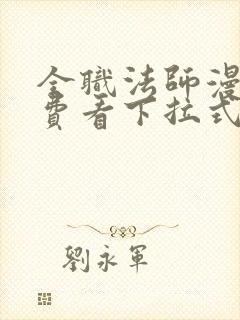 全職法師漫
費看下拉式
劉永軍